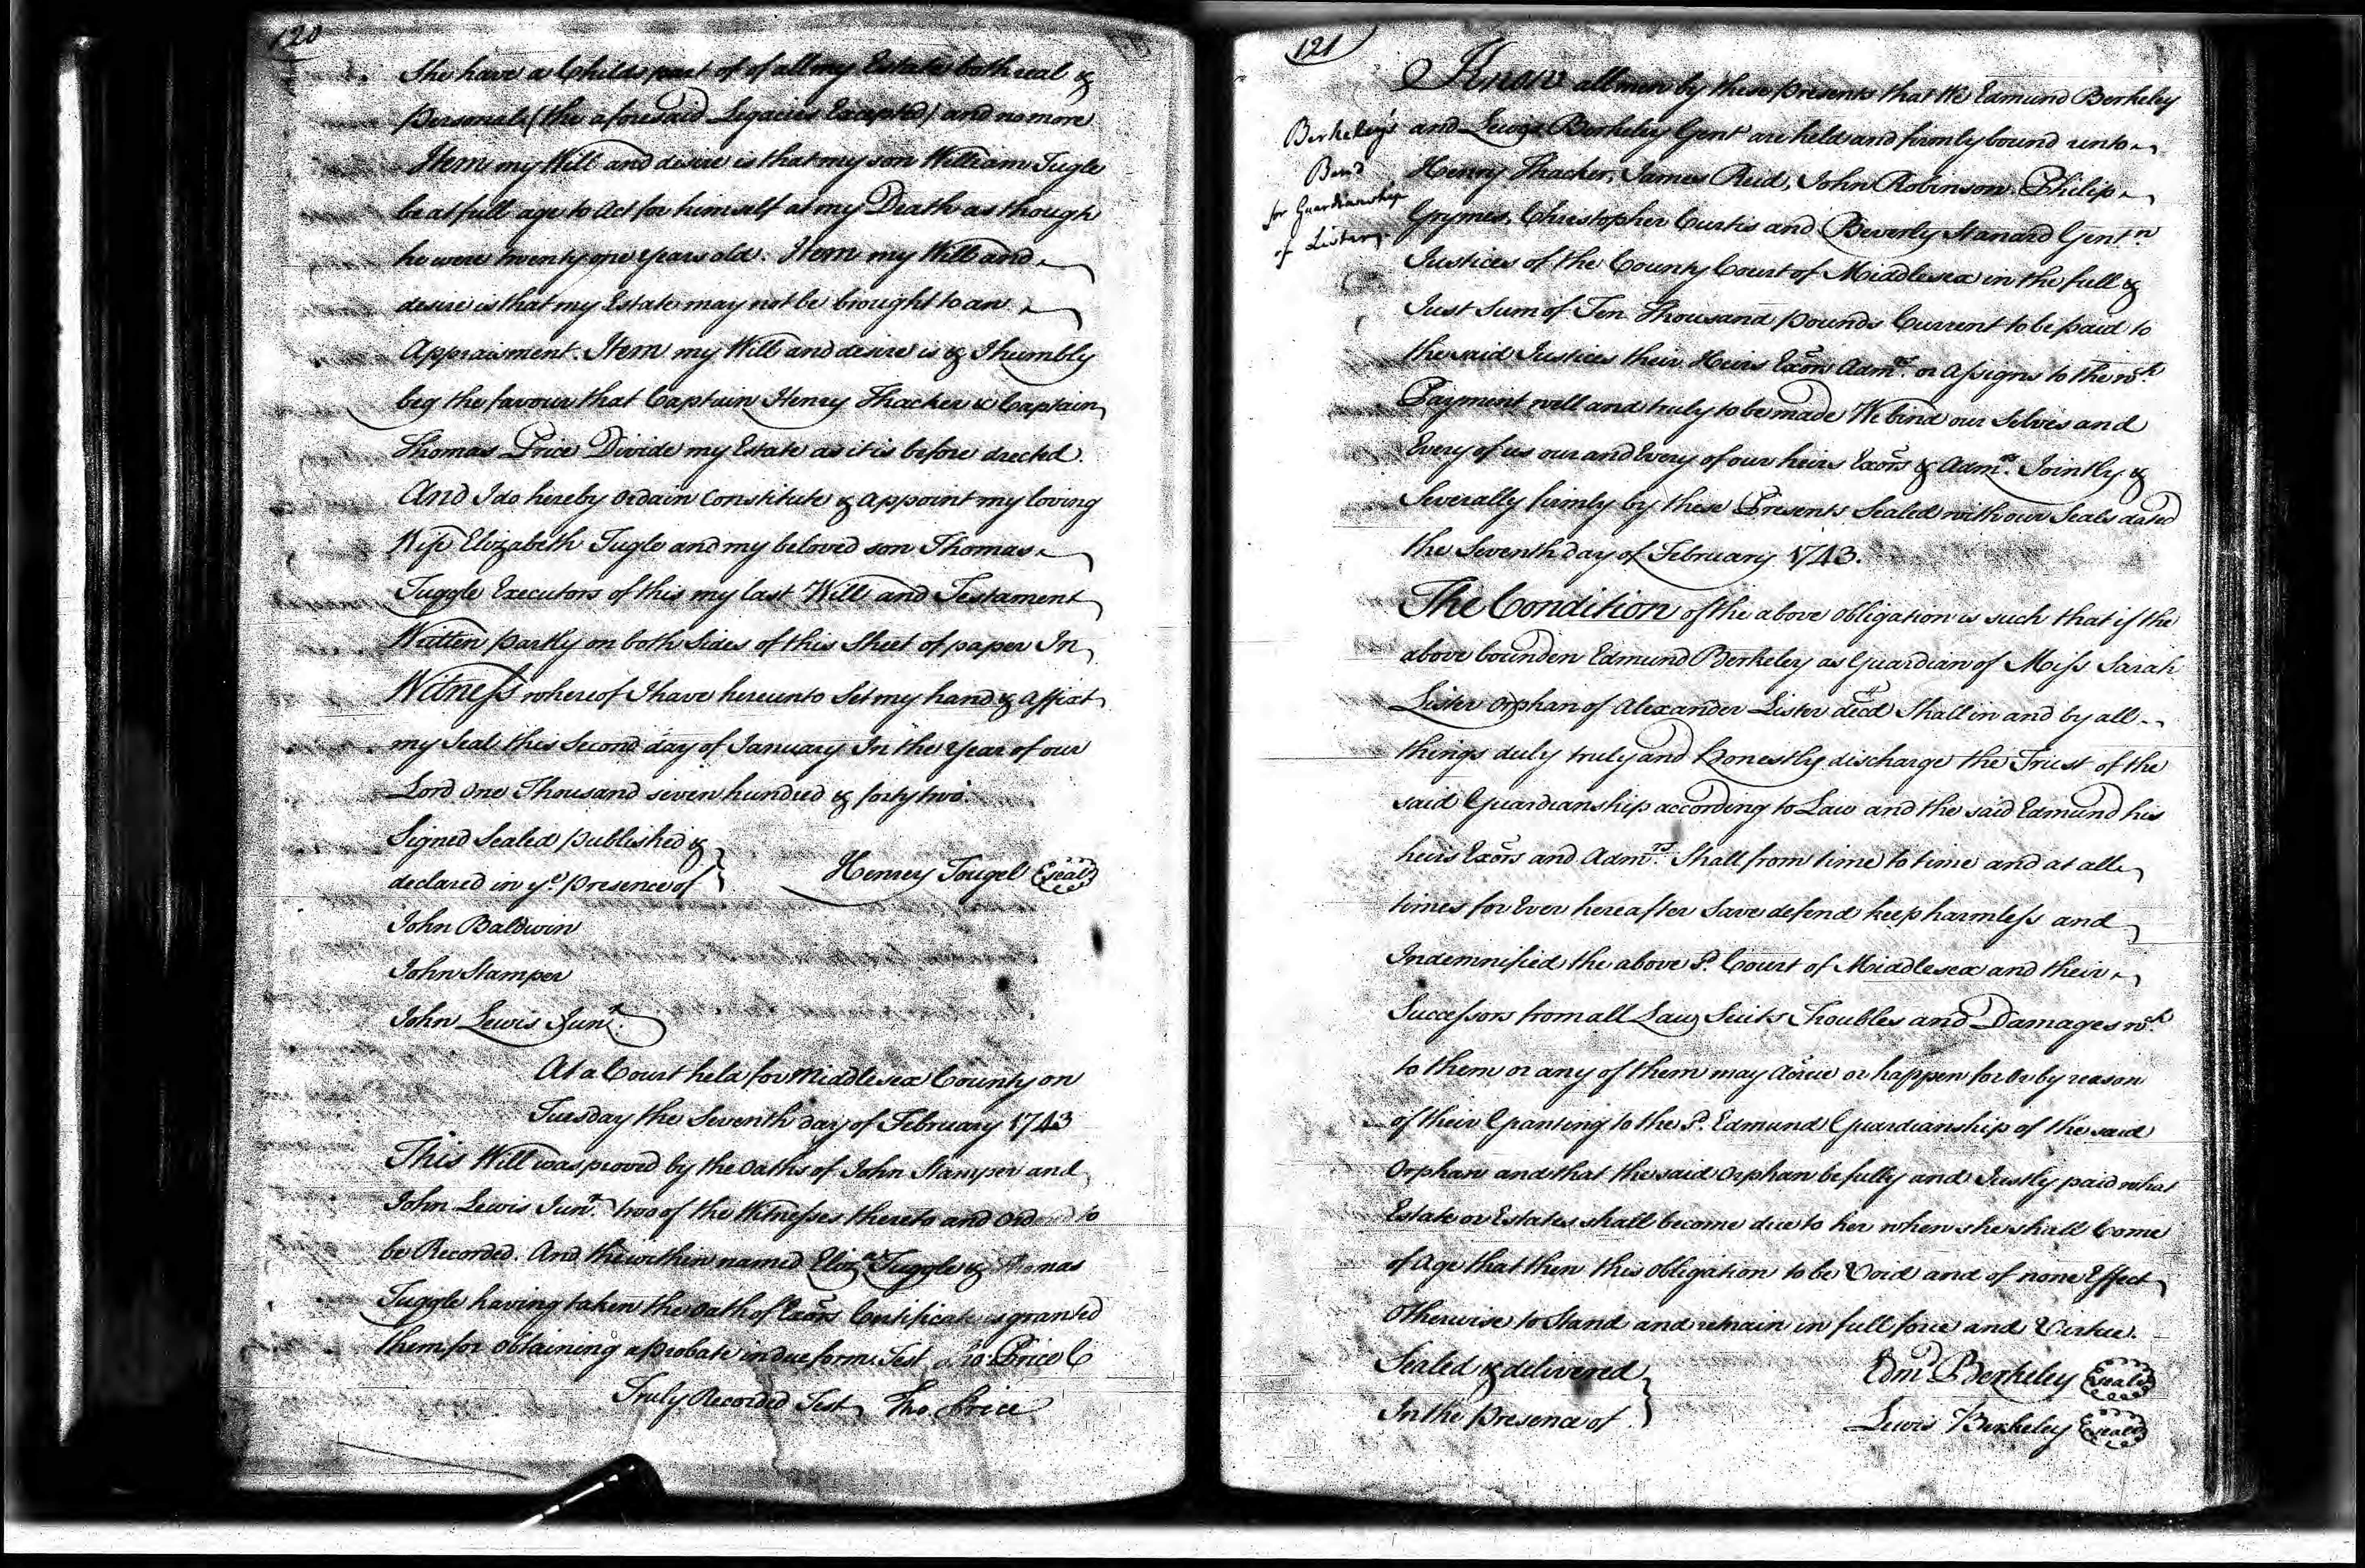 120
She have a Childs part of of all my Estate both real &
Personale (the aforesaid Legacies Excepted) and no more
Item my Will and desire is that my son William Tugle
be at full age to Act for himself at my Death as though
he were twenty one years old. Item my Will and
desire is that my Estate may not be brought to an
Appraisment. Item my Will and desire is & I humbly
beg the favour that Captain Henry Thacker & Captain
Thomas Price Divide my Estate as it is before drected.
And I do hereby Ordain Constitute & appoint my loving
Wife Elizabeth Tugle and my beloved son Thomas
Tuggle Executors of this my last Will and Testament
Written partly on both Sides of this Sheet of paper In
Witness whereof I have hereunto Set my hand & affixt
my Seal this Second day of January In the Year of our
Lord One Thousand seven hundred & forty two.
Signed Sealed published &
declared in ye presence of
Henrey Tougel Seal
John Baldwin
John Stamper
John Lewis Junr.
At a Court held for Middlesex County on
Tuesday the Seventh day of February 1743
This Will was proved by the Oaths of John Stamper and
John Lewis Junr. two of the Witnesses thereto and to
be Recorded. And the within named Elizath Tuggle & Thomas
Tuggle having taken the Oath of Exors Certificate is granted
them for Obtaining a Probate in due form. Test Tho: Price C
Truly Recorded Test Tho. Price
121
Berkeley's
Bond
for Guardianship
of Lister
Know all men by these presents that We Edmund Berkeley
and Lewis Berkeley Gent are held and firmly bound unto
Henry Thacker, James Reid, John Robinson, Philip
Grymes, Christopher Curtis and Beverly Stanard Gentn.
Justices of the County Court of Middlesex in the full &
Just Sum of Ten Thousand pounds Current to be paid to
the said Justices their Heirs Exors Admrs. or Assigns to the wch.
Payment well and truly to be made We bind our Selves and
Every of us our and Every of our heirs Exors & Admrs. Jointly &
Severally firmly by these Presents Sealed with our Seals dated
the Seventh day of February 1743.
The Condition of the above obligation is such that if the
above bounden Edmund Berkeley as Guardian of Miss Sarah
Lister Orphan of Alexander Lister decd Shall in and by all
things duly truly and honestly discharge the Trust of the
said Guardianship according to Law and the said Edmund his
heirs Exors and Admrs. Shall from time to time and at all
times for Ever hereafter Save defend keep harmless and
Indemnified the above Sd. Court of Middlesex and their
Successors from all Law Suits Troubles and Damages wch.
to them or any of them may Accrue or happen for Or by reason
of their Granting to the Sd. Edmund Guardianship of the said
Orphan and that the said Orphan be fully and Justly paid what
Estate or Estates shall become due to her when she shall Come
of Age that then this obligation to be Void and of none Effect
Otherwise to Stand and remain in full force and Virtue.
Sealed & delivered
In the Presence of
Edmd Berkeley Seal
Lewis Berkeley Seal